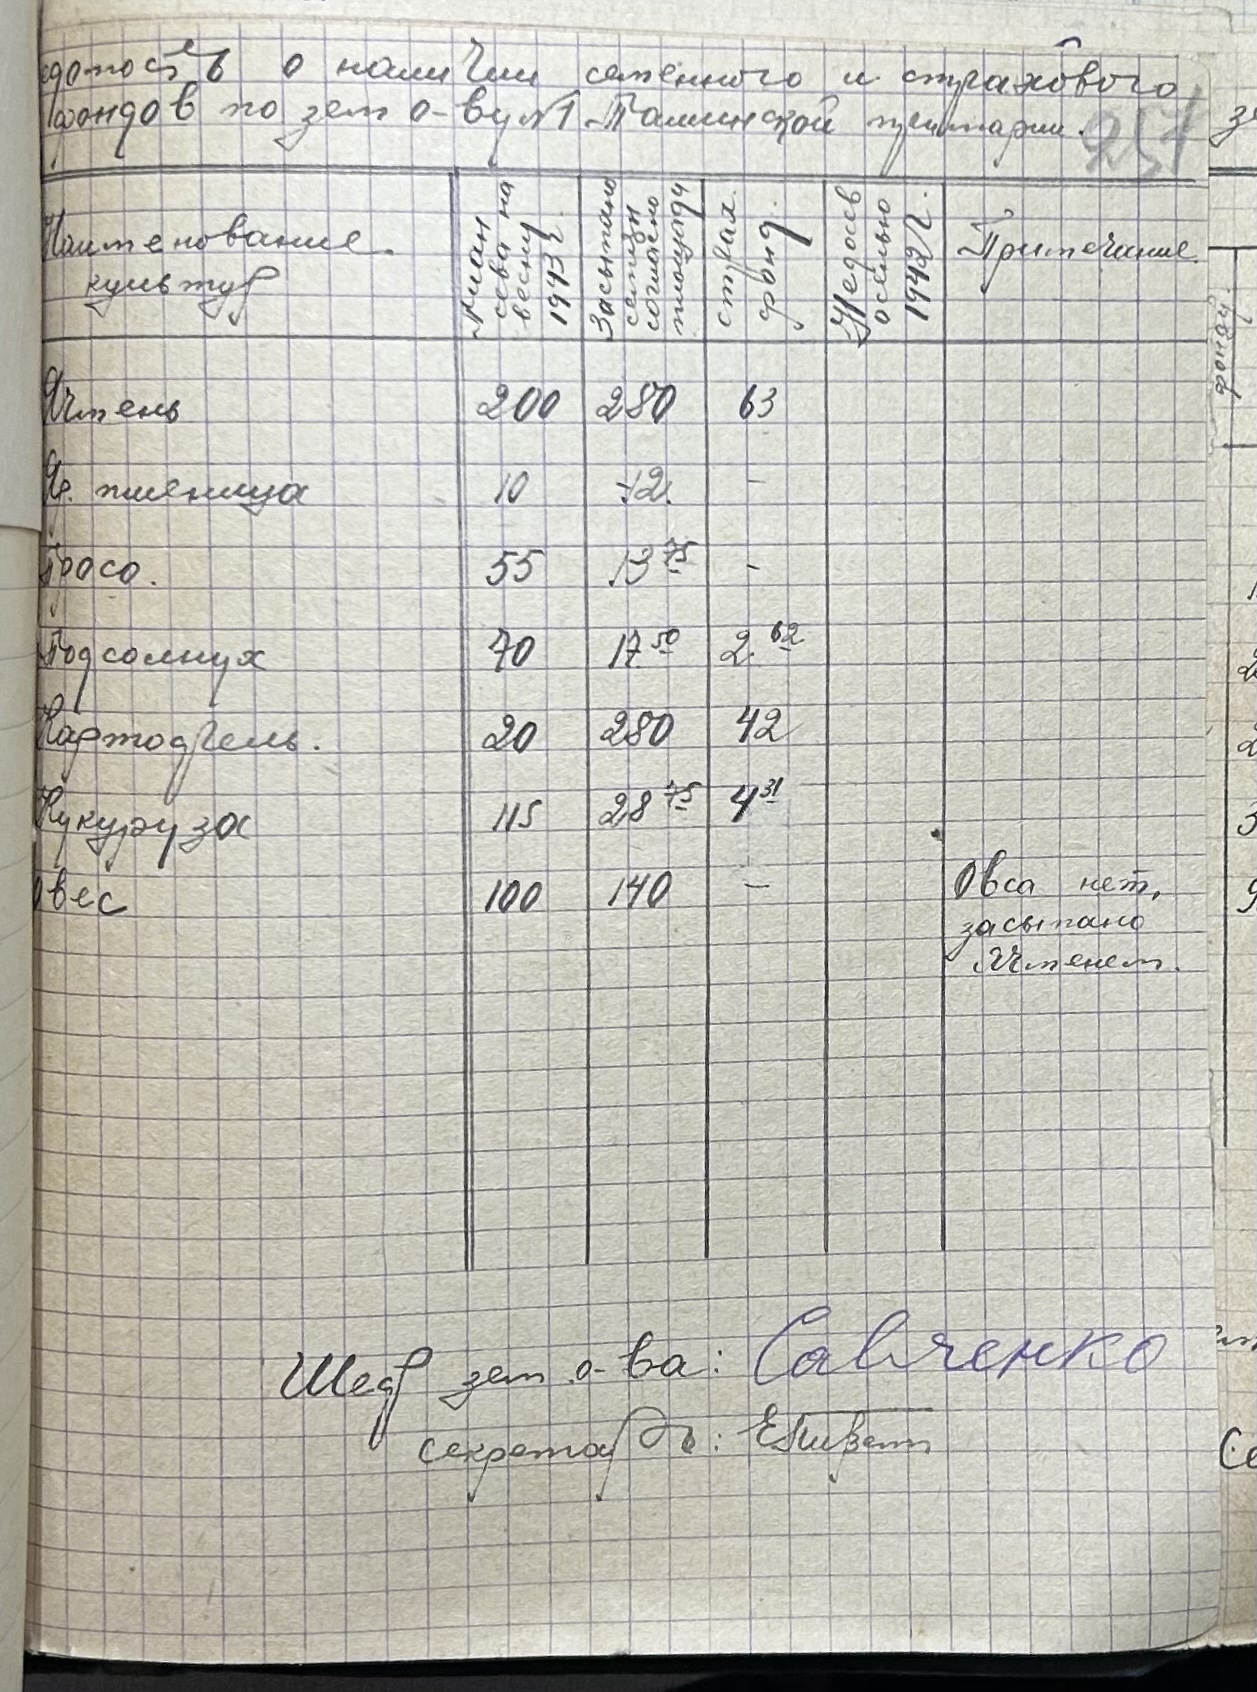 едомость о наличии семенного и страхового
фондов по зем о-ву №1 примарии.
257
Наименование культур | План сева на весну 1943 г. | Засыпано семян согласно площади | страх. фонд. | Недосев осенью 1942 г. | Примечание
Ячмень 200 280 63
Яр. пшеница 10 12. -
Просо. 55 13 75 -
Подсолнух 70 17 50 2. 62
Картофель. 20 280 42
Кукуруза 115 28 75 4 31
Овес 100 140 - Овса нет,
засыпано
Ячменем.
Шеф зем о-ва: Савченко
секретарь:
фонду